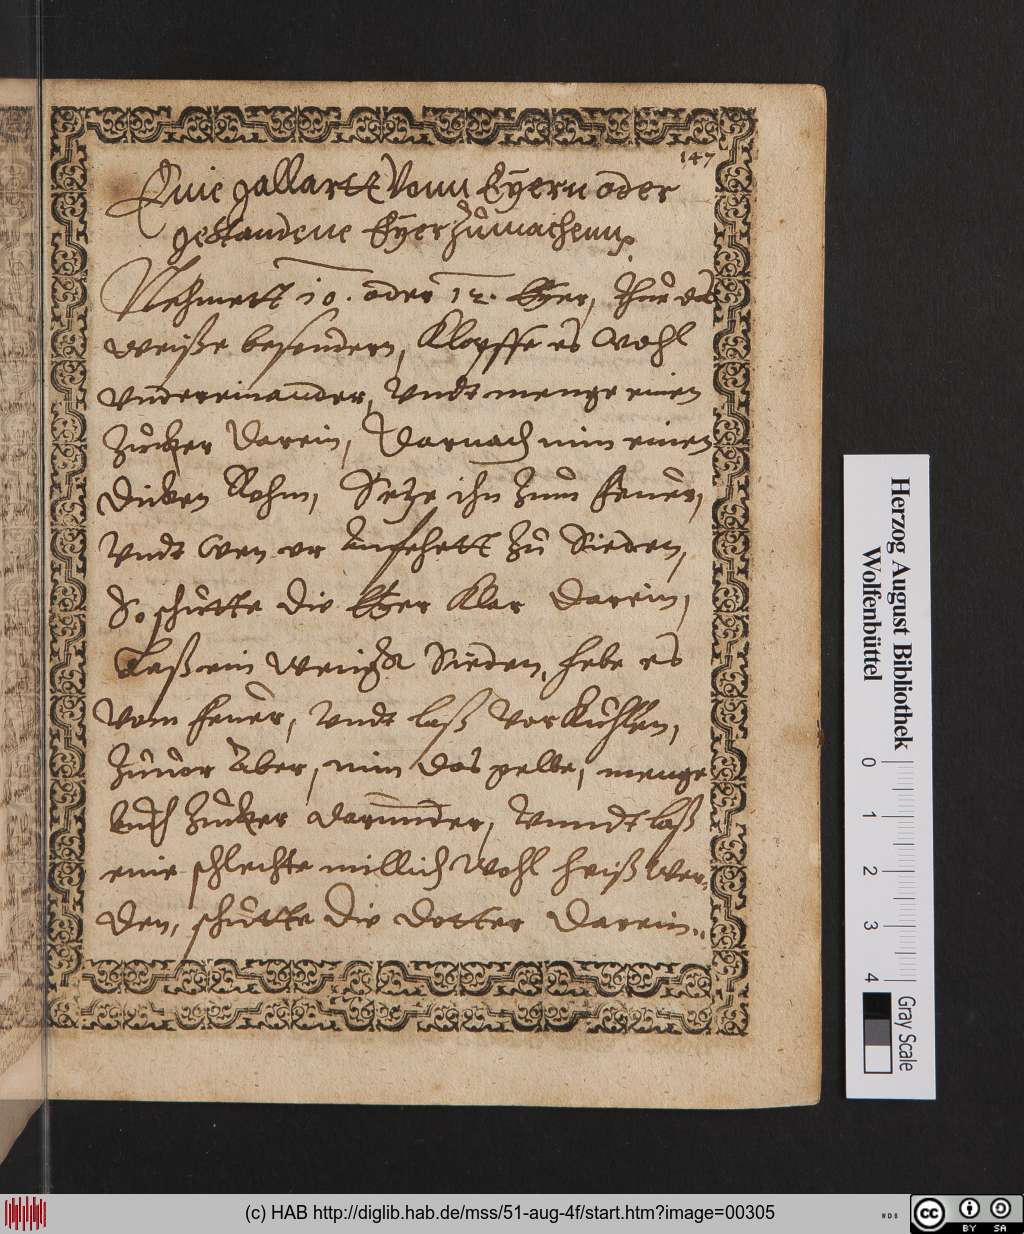 147
Eine gallartt Vonn Eÿern oder
gestandene Eÿer zůmachenn.
Nehmett 10. oder 12. Eÿer, thue das
weiße besondern, Klopffe es wohl
vndereinander, Vndt menge einen
Zucker darein, Darnach nim einen
dicken Rohm, Setze ihn zum feuer,
Vndt wen er anfehett zu Sieden,
So schütte die Eÿer Klar darein,
Laß ein wenigk Sieden, hebe es
vom feuer, Vndt laß Vorkühlen,
Zuuor aber, nim das gelbe, menge
auch Zucker darunder, Vnndt laß
eine schlechte millich wohl heiß wer-
den, schütte die dotter darein..
Herzog August Bibliothek
Wolfenbüttel
0 1 2 3 4
Gray Scale
(c) HAB http://diglib.hab.de/mss/51-aug-4f/start.htm?image=00305
WDB
cc BY SA